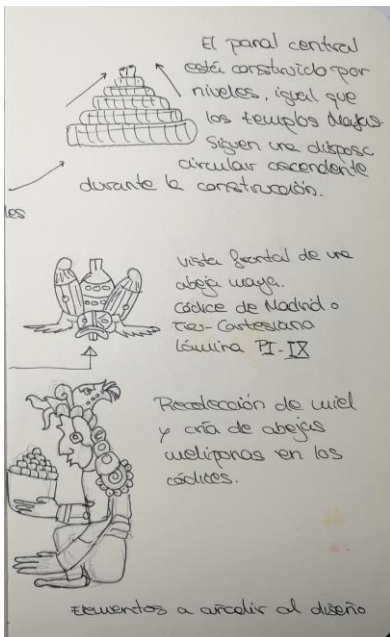 El panal central
está construido por
niveles, igual que
los templos Mayas.
Siguen una disposc
circular ascendente
durante la construcción.
les
vista frontal de una
abeja maya.
códice de Madrid o
Tro-Cortesiano
Lámina PI-IX
Recolección de miel
y cría de abejas
meliponas en los
códices.
Elementos a añadir al diseño